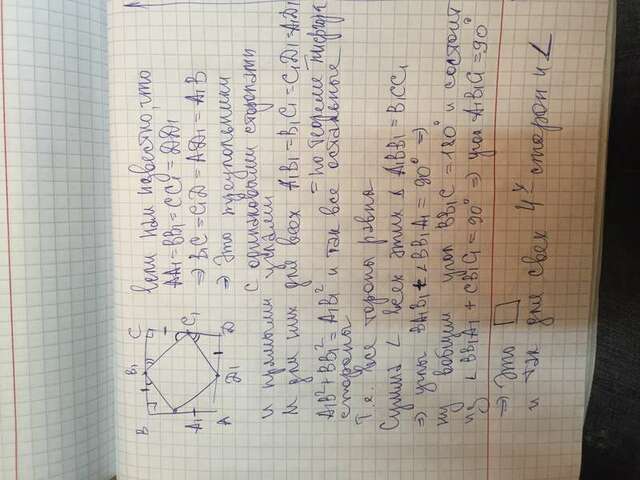 B B₁ C
A₁ C₁
A D₁ D
если нам известно, что
AA₁ = BB₁ = CC₁ = DD₁
⇒ B₁C = C₁D = AD₁ = A₁B
⇒ Это треугольники
с одинаковыми сторонами
и прямыми углами
И для них для всех A₁B₁ = B₁C₁ = C₁D₁ = A₁D₁
= по теореме пифагора
A₁B² + BB₁² = A₁B₁² и так все остальные
стороны
Т.е. все тороны равны
Сумма ∠ всех этих Δ A₁BB₁ = B₁CC₁
⇒ углы BA₁B₁ + ∠BB₁A₁ = 90° ⇒
ну вобщим угол BB₁C = 180° и состоит
из ∠BB₁A₁ + CB₁C₁ = 90° ⇒ угол A₁B₁C₁ = 90°
⇒ Это □
и так для свех 4х сторон и ∠